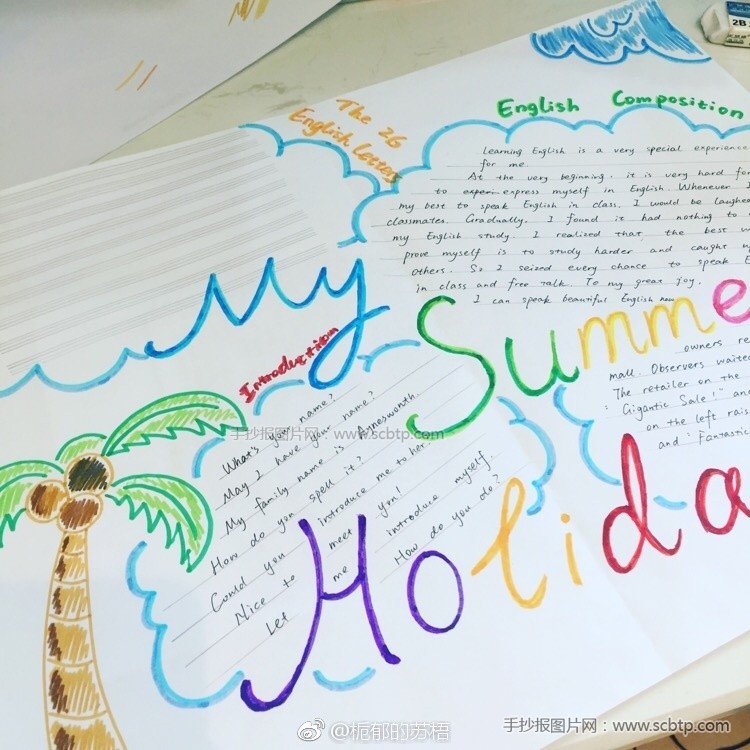 2B
The 26
English letters
English Composition
Learning English is a very special experience
for me.
At the very beginning, it is very hard for
to experi express myself in English. Whenever I
my best to speak English in class, I would be laughed
classmates. Gradually, I found it had nothing to
my English study. I realized that the best w
prove myself is to study harder and caught u
others. So I seized every chance to speak E
in class and free talk. To my great joy,
I can speak beautiful English now
My
Summe
Holida
Introduction
What's your name?
May I have your name?
My family name is Hynesworth.
How do you spell it?
Could you introduce me to her.
Nice to meet you!
Let me introduce myself.
How do you do?
owners re
mall. Observers waited
The retailer on the
"Gigantic Sale!" and
on the left rais
and "Fantastic
手抄报图片网:www.scbtp.com
@栀郁的芳梧
手抄报图片网:www.scbtp.com